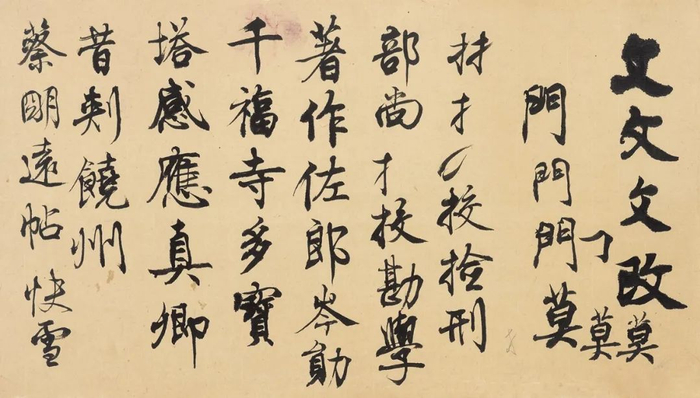 文文文改莫
莫
門門門莫
材才挍撿刑
部尚才挍勘學
著作佐郎岑勛
千福寺多寶
塔感應真卿
昔刺饒州
蔡明遠帖快雪